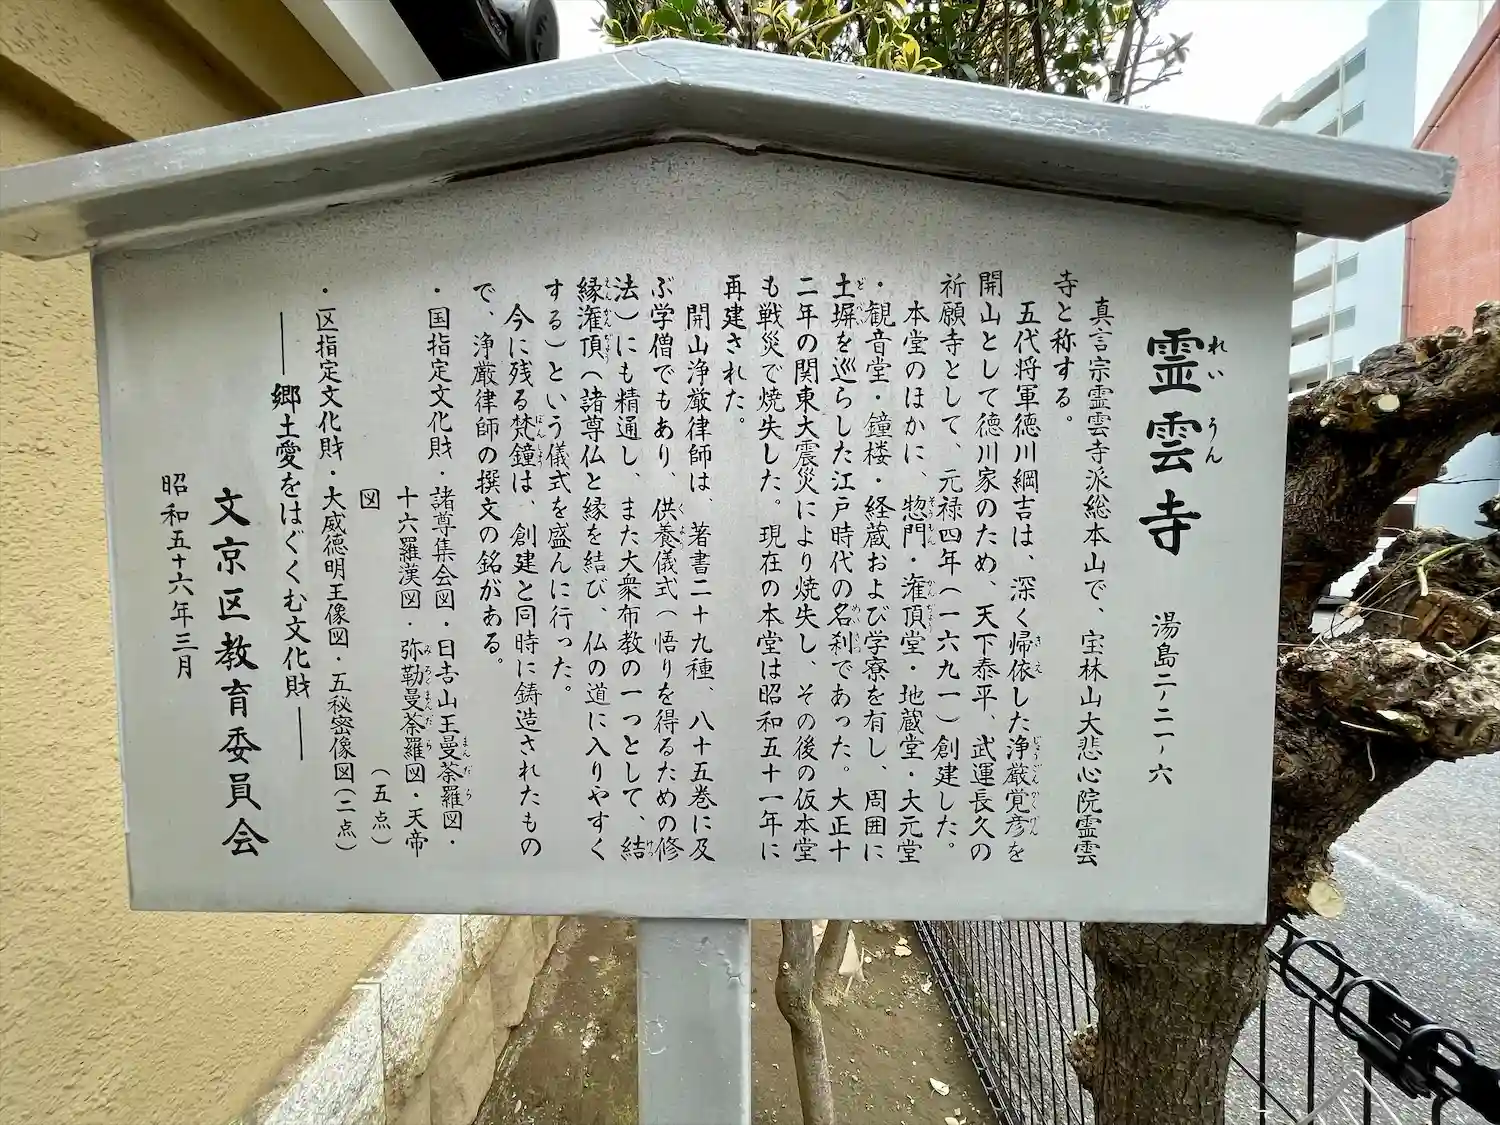 霊雲寺 湯島二ノ二一ノ六
れい うん
真言宗霊雲寺派総本山で、宝林山大悲心院霊雲
寺と称する。
五代将軍徳川綱吉は、深く帰依した浄厳覚彦を
きえ じょうごんかくげん
開山として徳川家のため、天下泰平、武運長久の
祈願寺として、元禄四年（一六九一）創建した。
本堂のほかに、惣門・潅頂堂・地蔵堂・大元堂
そうもん かんぢょう
・観音堂・鐘楼・経蔵および学寮を有し、周囲に
土塀を巡らした江戸時代の名刹であった。大正十
どべい めいさつ
二年の関東大震災により焼失し、その後の仮本堂
も戦災で焼失した。現在の本堂は昭和五十一年に
再建された。
開山浄厳律師は、著書二十九種、八十五巻に及
ぶ学僧でもあり、供養儀式（悟りを得るための修
くよう
法）にも精通し、また大衆布教の一つとして、結
けつ
縁潅頂（諸尊仏と縁を結び、仏の道に入りやすく
えんかんぢょう
する）という儀式を盛んに行った。
今に残る梵鐘は、創建と同時に鋳造されたもの
ぼんしょう
で、浄厳律師の撰文の銘がある。
・国指定文化財・諸尊集会図・日吉山王曼荼羅図・
まんだら
十六羅漢図・弥勒曼荼羅図・天帝
みろくまんだら
図 （五点）
・区指定文化財・大威徳明王像図・五秘密像図（二点）
――郷土愛をはぐくむ文化財――
文京区教育委員会
昭和五十六年三月